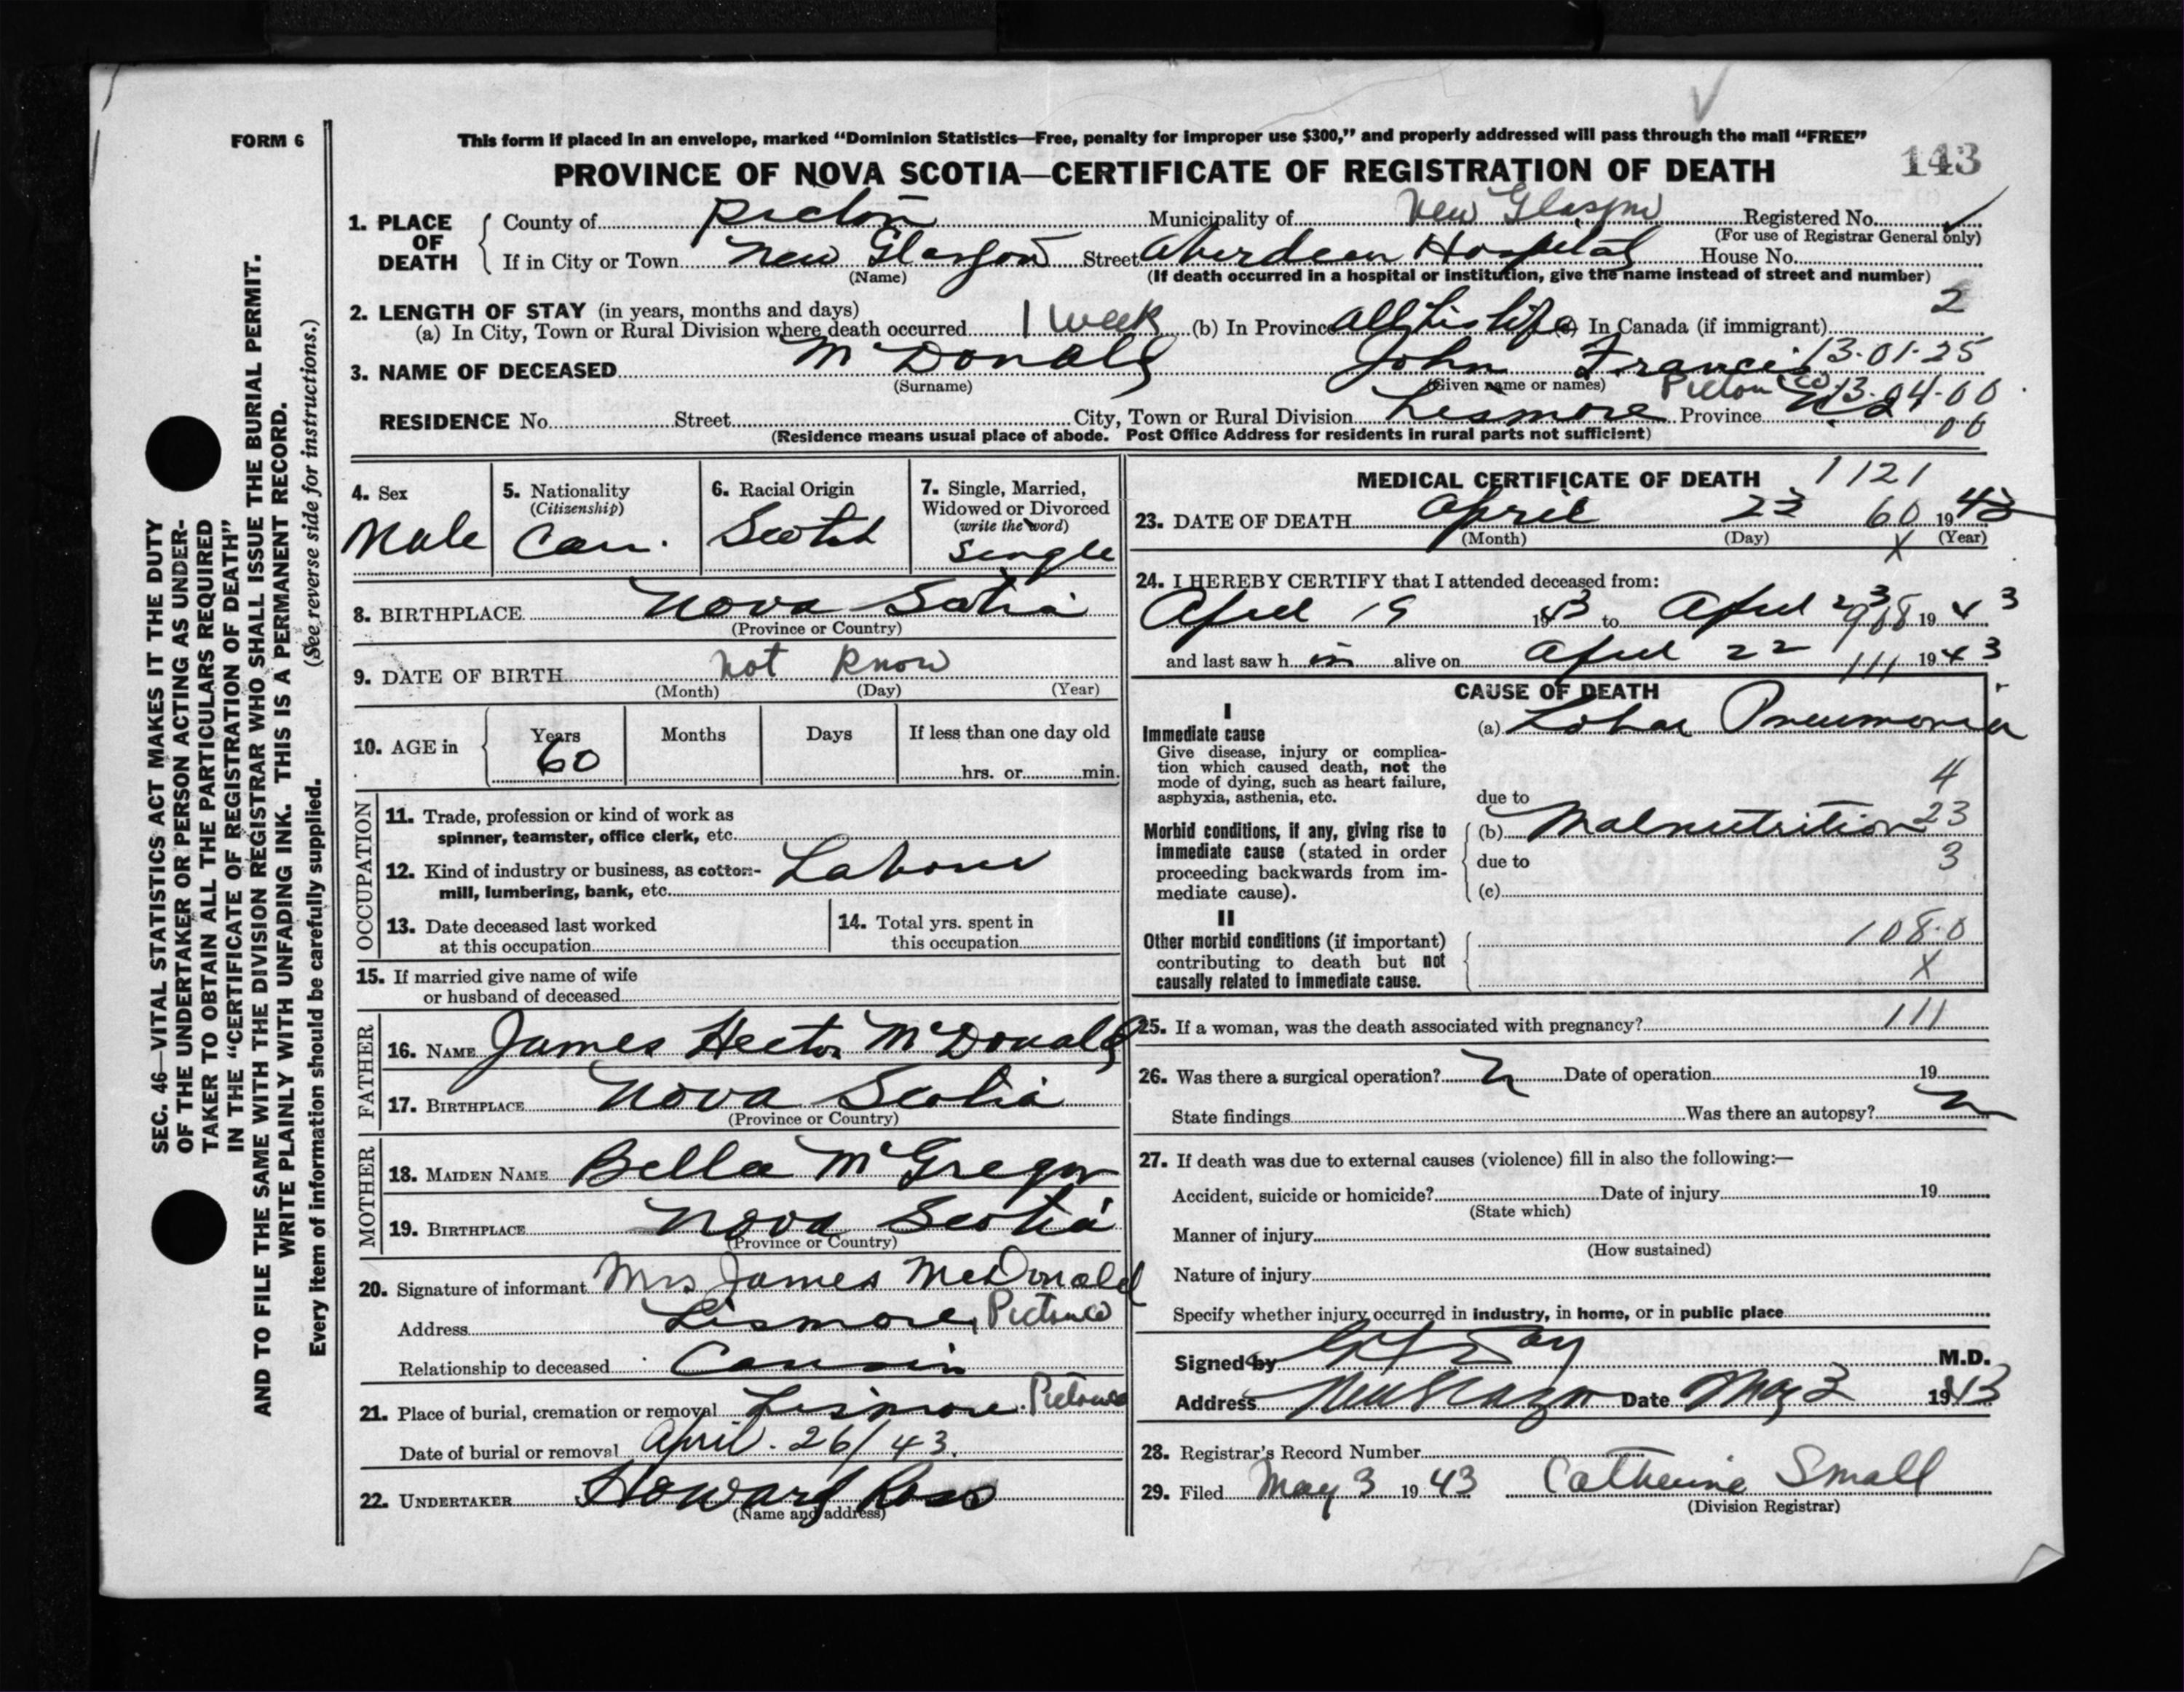 FORM 6
This form if placed in an envelope, marked "Dominion Statistics—Free, penalty for improper use $300," and properly addressed will pass through the mail "FREE"
PROVINCE OF NOVA SCOTIA—CERTIFICATE OF REGISTRATION OF DEATH
143
1. PLACE OF DEATH
County of Pictou Municipality of New Glasgow Registered No.
(For use of Registrar General only)
If in City or Town New Glasgow Street Aberdeen Hospital House No.
(Name) (If death occurred in a hospital or institution, give the name instead of street and number)
2. LENGTH OF STAY (in years, months and days) 2
(a) In City, Town or Rural Division where death occurred 1 week (b) In Province All his life (c) In Canada (if immigrant)
3. NAME OF DECEASED McDonald John Francis 13.01.25
(Surname) (Given name or names) Pictou Co 13.04.00
RESIDENCE No. Street City, Town or Rural Division Lismore Province N.S. 06
(Residence means usual place of abode. Post Office Address for residents in rural parts not sufficient)
4. Sex
Male
5. Nationality
(Citizenship)
Can.
6. Racial Origin
Scotch
7. Single, Married,
Widowed or Divorced
(write the word)
Single
8. BIRTHPLACE Nova Scotia
(Province or Country)
9. DATE OF BIRTH not know
(Month) (Day) (Year)
10. AGE in Years Months Days If less than one day old
60 hrs. or min.
OCCUPATION
11. Trade, profession or kind of work as
spinner, teamster, office clerk, etc.
12. Kind of industry or business, as cotton-
mill, lumbering, bank, etc. Labour
13. Date deceased last worked
at this occupation
14. Total yrs. spent in
this occupation
15. If married give name of wife
or husband of deceased
FATHER
16. NAME James Hector McDonald
17. BIRTHPLACE Nova Scotia
(Province or Country)
MOTHER
18. MAIDEN NAME Bella McGregor
19. BIRTHPLACE Nova Scotia
(Province or Country)
20. Signature of informant Mrs James McDonald
Address Lismore, Pictou Co
Relationship to deceased Cousin
21. Place of burial, cremation or removal Lismore Pictou Co
Date of burial or removal April. 26/43.
22. UNDERTAKER Howard Ross
(Name and address)
MEDICAL CERTIFICATE OF DEATH 1121
23. DATE OF DEATH April 23 60 1943
(Month) (Day) X (Year)
24. I HEREBY CERTIFY that I attended deceased from:
April 19 1943 to April 23 1943
and last saw him alive on April 22 111 1943
CAUSE OF DEATH
I
Immediate cause
Give disease, injury or complica-
tion which caused death, not the
mode of dying, such as heart failure,
asphyxia, asthenia, etc.
(a) Lobar Pneumonia
4
due to
Morbid conditions, if any, giving rise to
immediate cause (stated in order
proceeding backwards from im-
mediate cause).
(b) Malnutrition 23
due to 3
(c)
II
Other morbid conditions (if important)
contributing to death but not
causally related to immediate cause.
108.0
X
25. If a woman, was the death associated with pregnancy? 111
26. Was there a surgical operation? Date of operation 19
State findings Was there an autopsy?
27. If death was due to external causes (violence) fill in also the following:—
Accident, suicide or homicide? Date of injury 19
(State which)
Manner of injury
(How sustained)
Nature of injury
Specify whether injury occurred in industry, in home, or in public place
Signed by M.D.
Address New Glasgow Date May 3 1943
28. Registrar's Record Number
29. Filed May 3 1943 Catherine Small
(Division Registrar)
SEC. 46—VITAL STATISTICS ACT MAKES IT THE DUTY
OF THE UNDERTAKER OR PERSON ACTING AS UNDER-
TAKER TO OBTAIN ALL THE PARTICULARS REQUIRED
IN THE "CERTIFICATE OF REGISTRATION OF DEATH"
AND TO FILE THE SAME WITH THE DIVISION REGISTRAR WHO SHALL ISSUE THE BURIAL PERMIT.
WRITE PLAINLY WITH UNFADING INK. THIS IS A PERMANENT RECORD.
Every item of information should be carefully supplied. (See reverse side for instructions.)